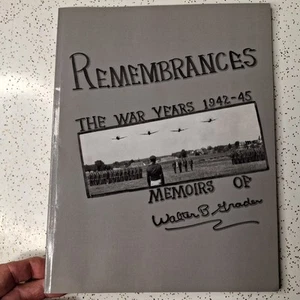 REMEMBRANCES
THE WAR YEARS 1942-45
MEMOIRS OF
Walter B. Graden